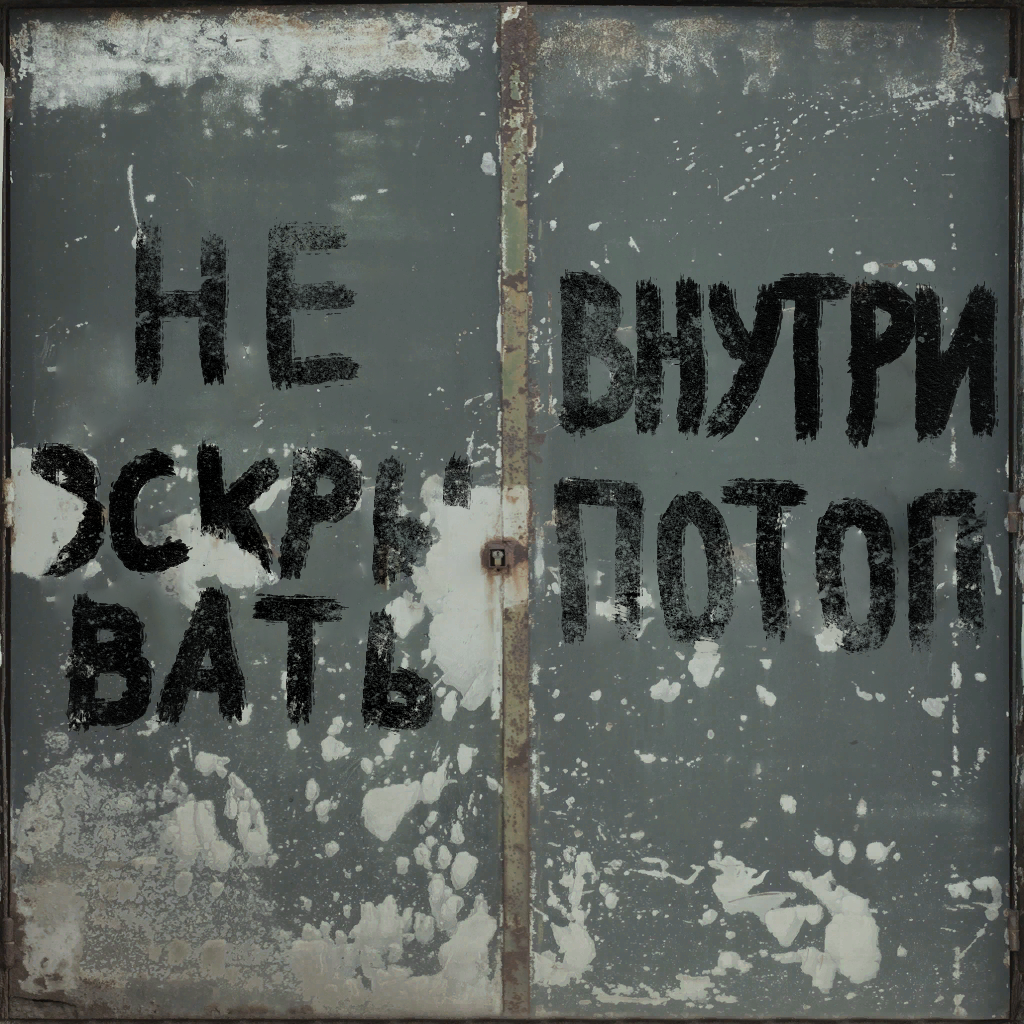 НЕ
ВСКРЫ
ВАТЬ
ВНУТРИ
ПОТОП